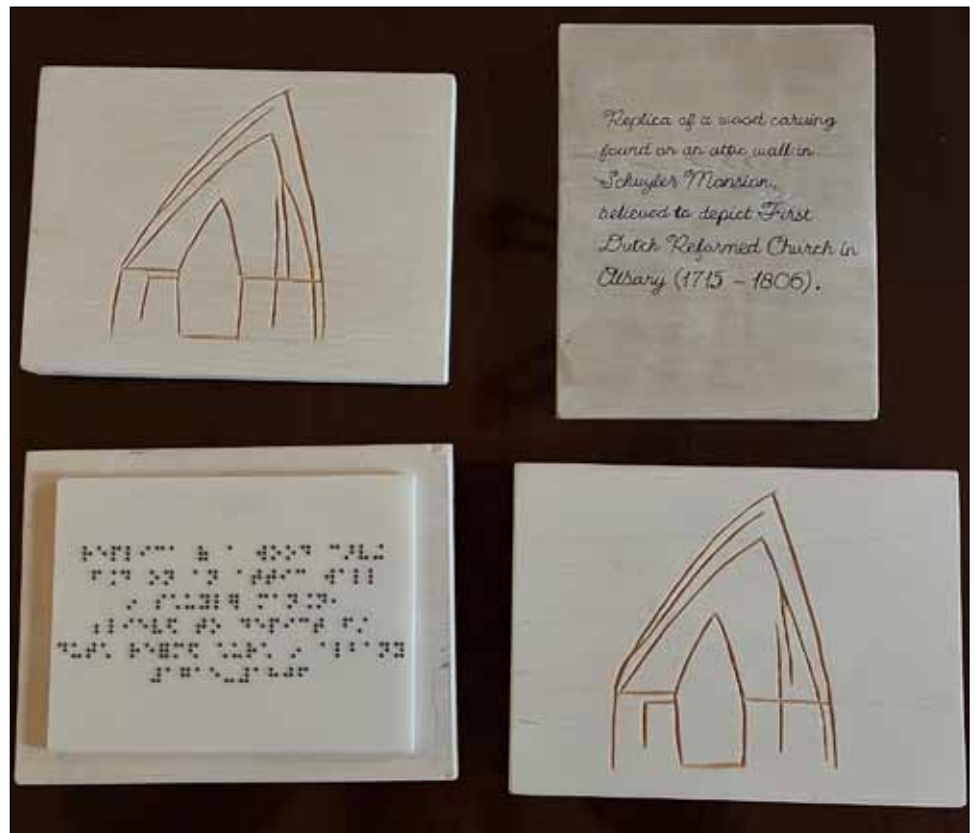 Replica of a wood carving
found on an attic wall in
Schuyler Mansion,
believed to depict First
Dutch Reformed Church in
Albany (1715 – 1806).
⠗⠑⠏⠇⠊⠉⠁ ⠷ ⠁ ⠺⠕⠕⠙ ⠉⠜⠧⠬
⠋⠨⠙ ⠕⠝ ⠁⠝ ⠁⠞⠞⠊⠉ ⠺⠁⠇⠇
⠔ ⠎⠡⠥⠽⠇⠻ ⠍⠁⠝⠨⠝⠂
⠆⠇⠊⠑⠧⠫ ⠞⠕ ⠙⠑⠏⠊⠉⠞ ⠋⠌
⠙⠥⠞⠡ ⠗⠑⠿⠍⠫ ⠡⠥⠗⠡ ⠔ ⠁⠇⠃⠁⠝⠽
⠼⠁⠛⠁⠑⠤⠼⠁⠓⠚⠋